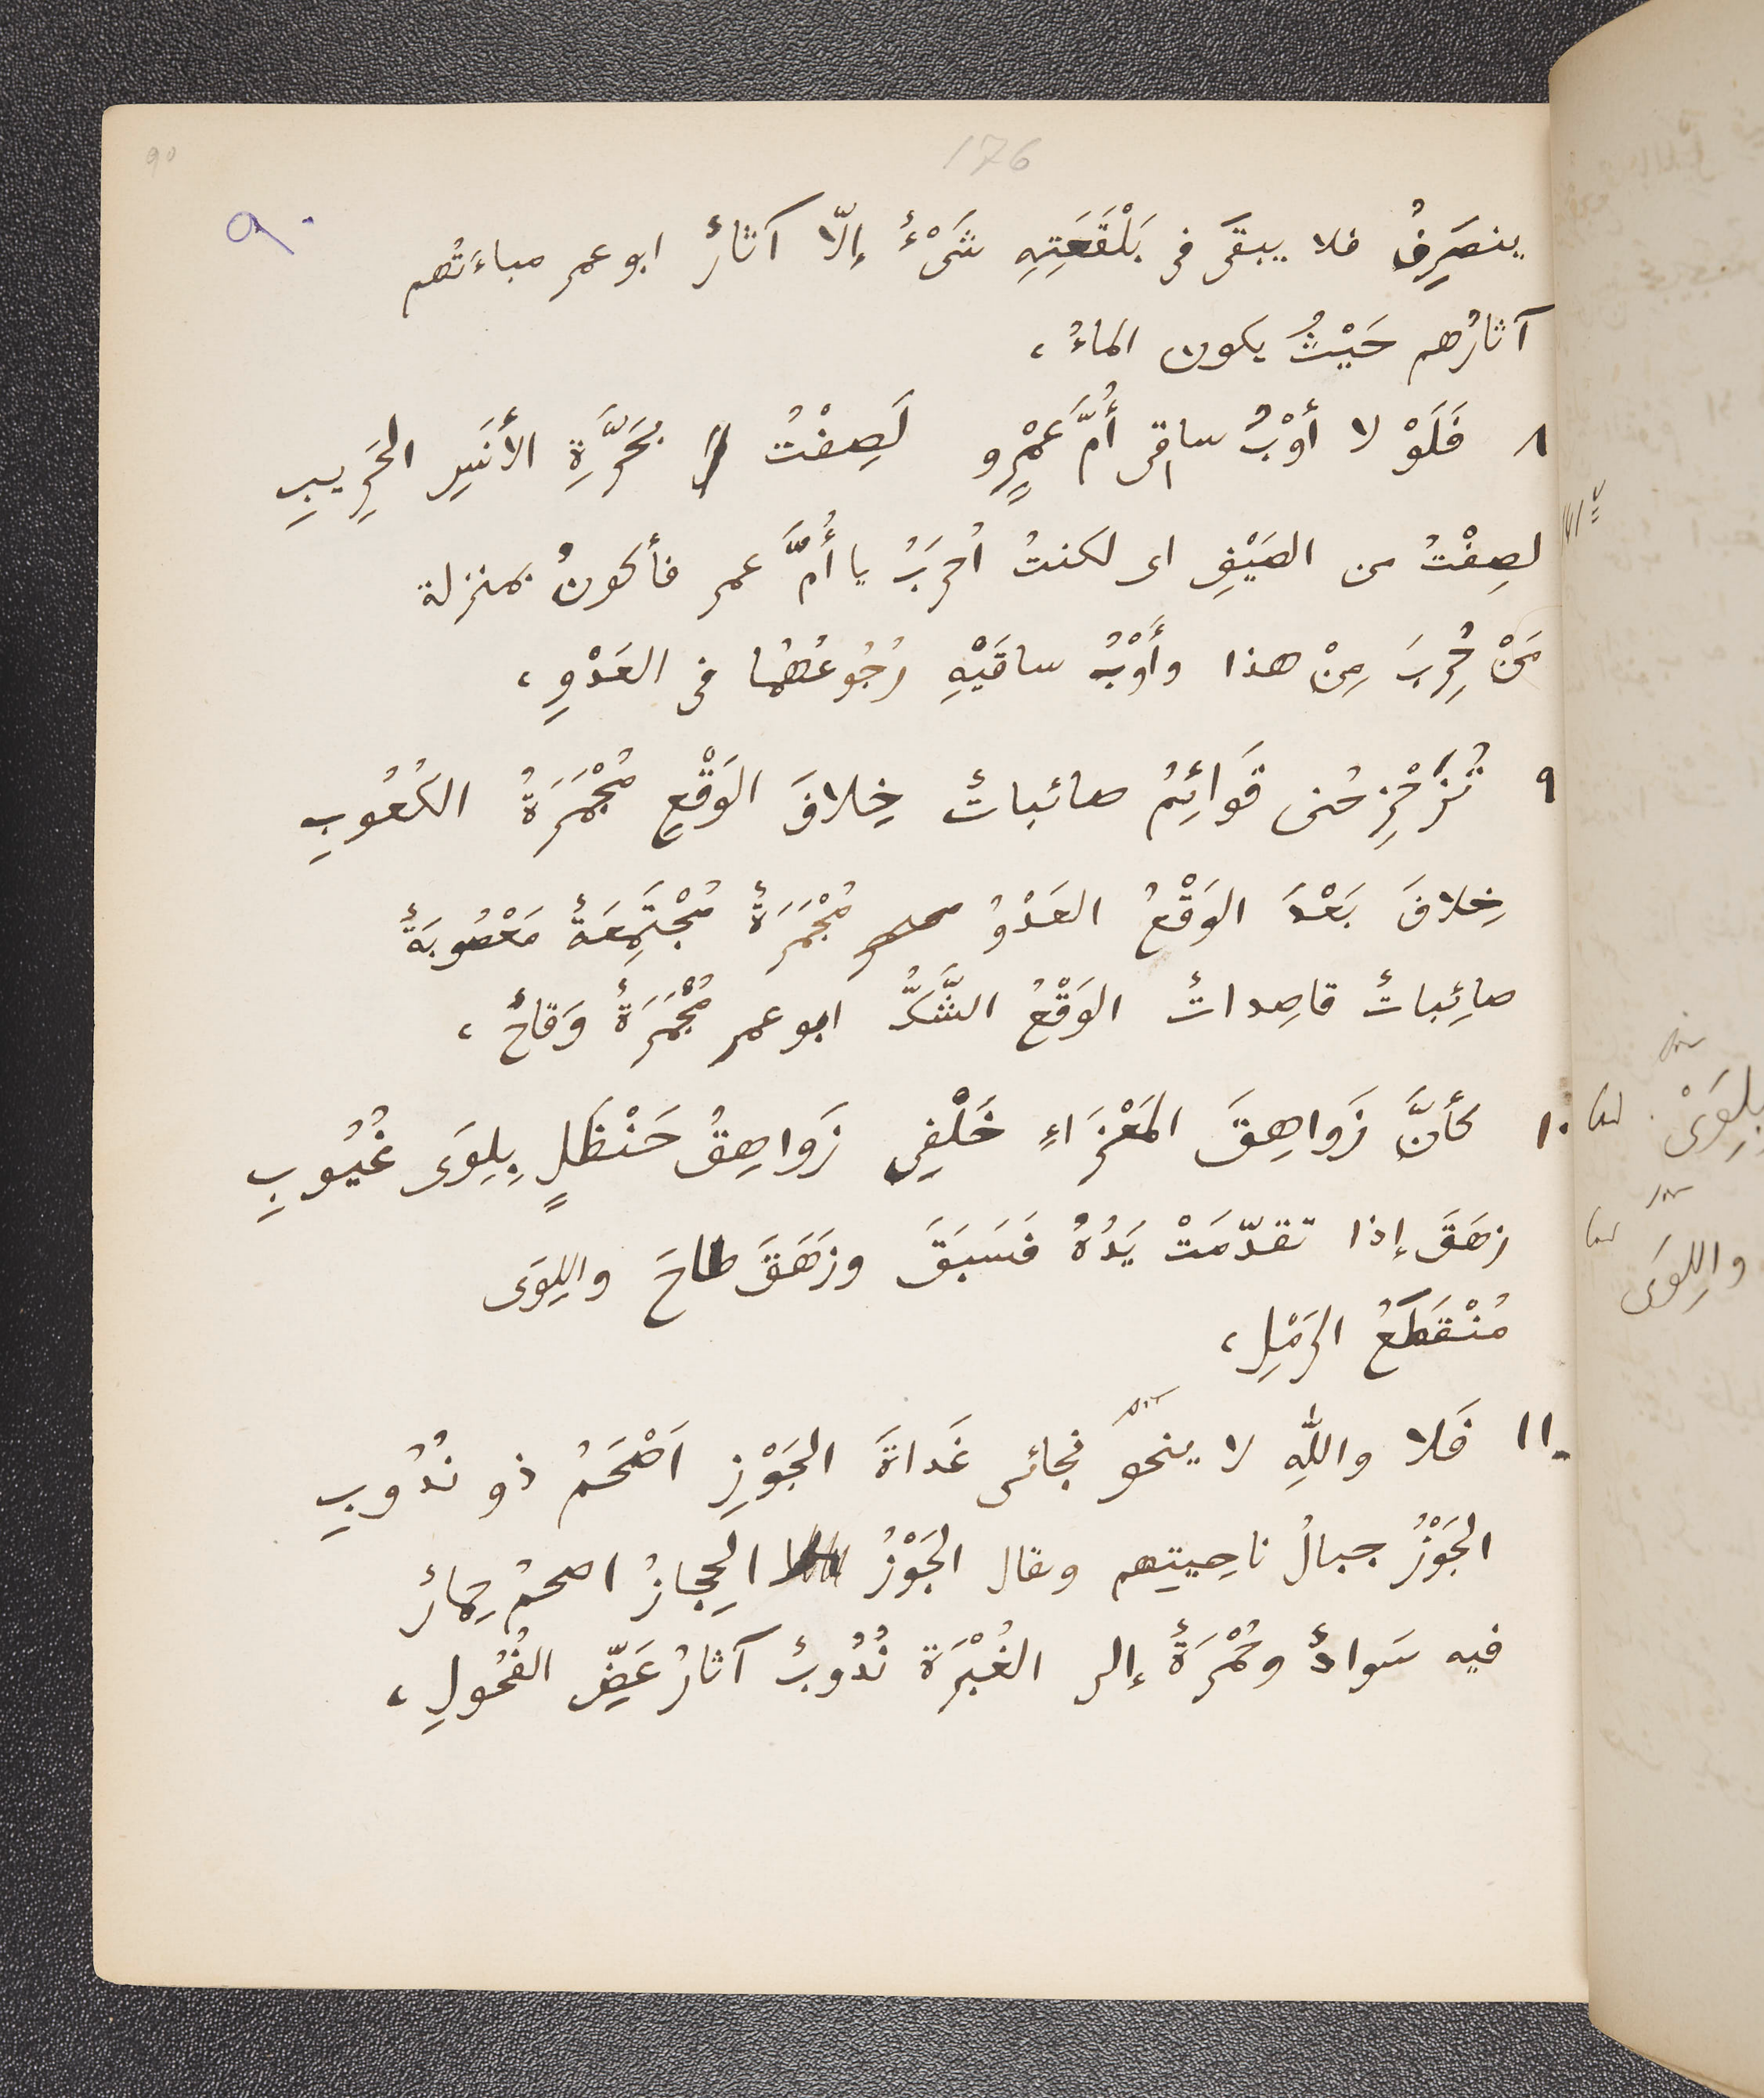 90
176
٩٠
ينصَرِفُ فلا يبقَى فى بَلْقَعَتِهِ شَىْءٌ إلّا آثارٌ ابو عمر مباءَتُهم
آثارُهم حَيْثُ يكون الماءُ ،
٨ فَلَوْ لا أَوْبُ ساقى أُمَّ عَمْرٍو لَصِفْتُ بحَرَّةِ الأنَسِ الحَرِيبِ
لصِفْتُ من الصَيْفِ اى لكنتُ أُحرَبُ يا أُمَّ عمر فأكونُ بمنزلة
مَنْ حُرِبَ مِنْ هذا وأَوْبُ ساقَيْهِ رُجُوعُهُما فى العَدْوِ ،
٩ تُزَحْزِحُنى قَوَائِمُ صائباتٌ خِلافَ الوَقْعِ مُجْمَرَةُ الكُعُوبِ
خِلافَ بَعْدَ الوَقْعُ العَدْوُ مُجْمَرَةٌ مُجْتَمِعَةٌ مَعْصُوبَةٌ
صائِباتٌ قاصِداتٌ الوَقْعُ الشَّدُّ ابو عمر مُجْمَرَةٌ وَقاحٌ ،
١٠ كأنَّ زَواهِقَ المَعْزَاءِ خَلْفِى زَواهِقُ حَنْظَلٍ بِلِوَى غُيُوبِ
زهَقَ إذا تقدّمَتْ يَدُهُ فَسَبَقَ وزَهَقَ طاحَ واللِوَى
مُنْقَطَعُ الرَمْلِ ،
١١ فَلا واللّهِ لا ينحو نجائى غَداةَ الجَوْزِ اَصْحَمُ ذو نُدُوبِ
الجَوْزُ جبالُ ناحِيتِهم ويقال الجَوْزُ الحِجازُ اصحمُ حِمارٌ
فيه سَوادٌ وحُمْرَةٌ إلى الغُبْرَة نُدُوبٌ آثارُ عَضِّ الفُحُولِ ،
بِلِوَىْ
واللِوَى